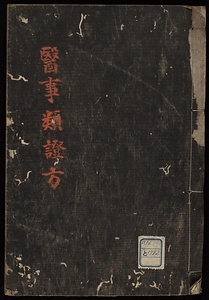 醫事類證方